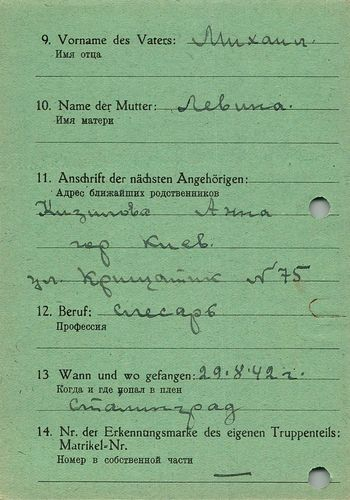 9. Vorname des Vaters: Михаил.
Имя отца
10. Name der Mutter: Левина.
Имя матери
11. Anschrift der nächsten Angehörigen:
Адрес ближайших родственников
Кизилова Анна
гор Киев.
ул. Крищатик N 75
12. Beruf: слесарь
Профессия
13 Wann und wo gefangen: 29.8.42 г.
Когда и где попал в плен
Сталинград
14. Nr. der Erkennungsmarke des eigenen Truppenteils:
Matrikel-Nr.
Номер в собственной части
—